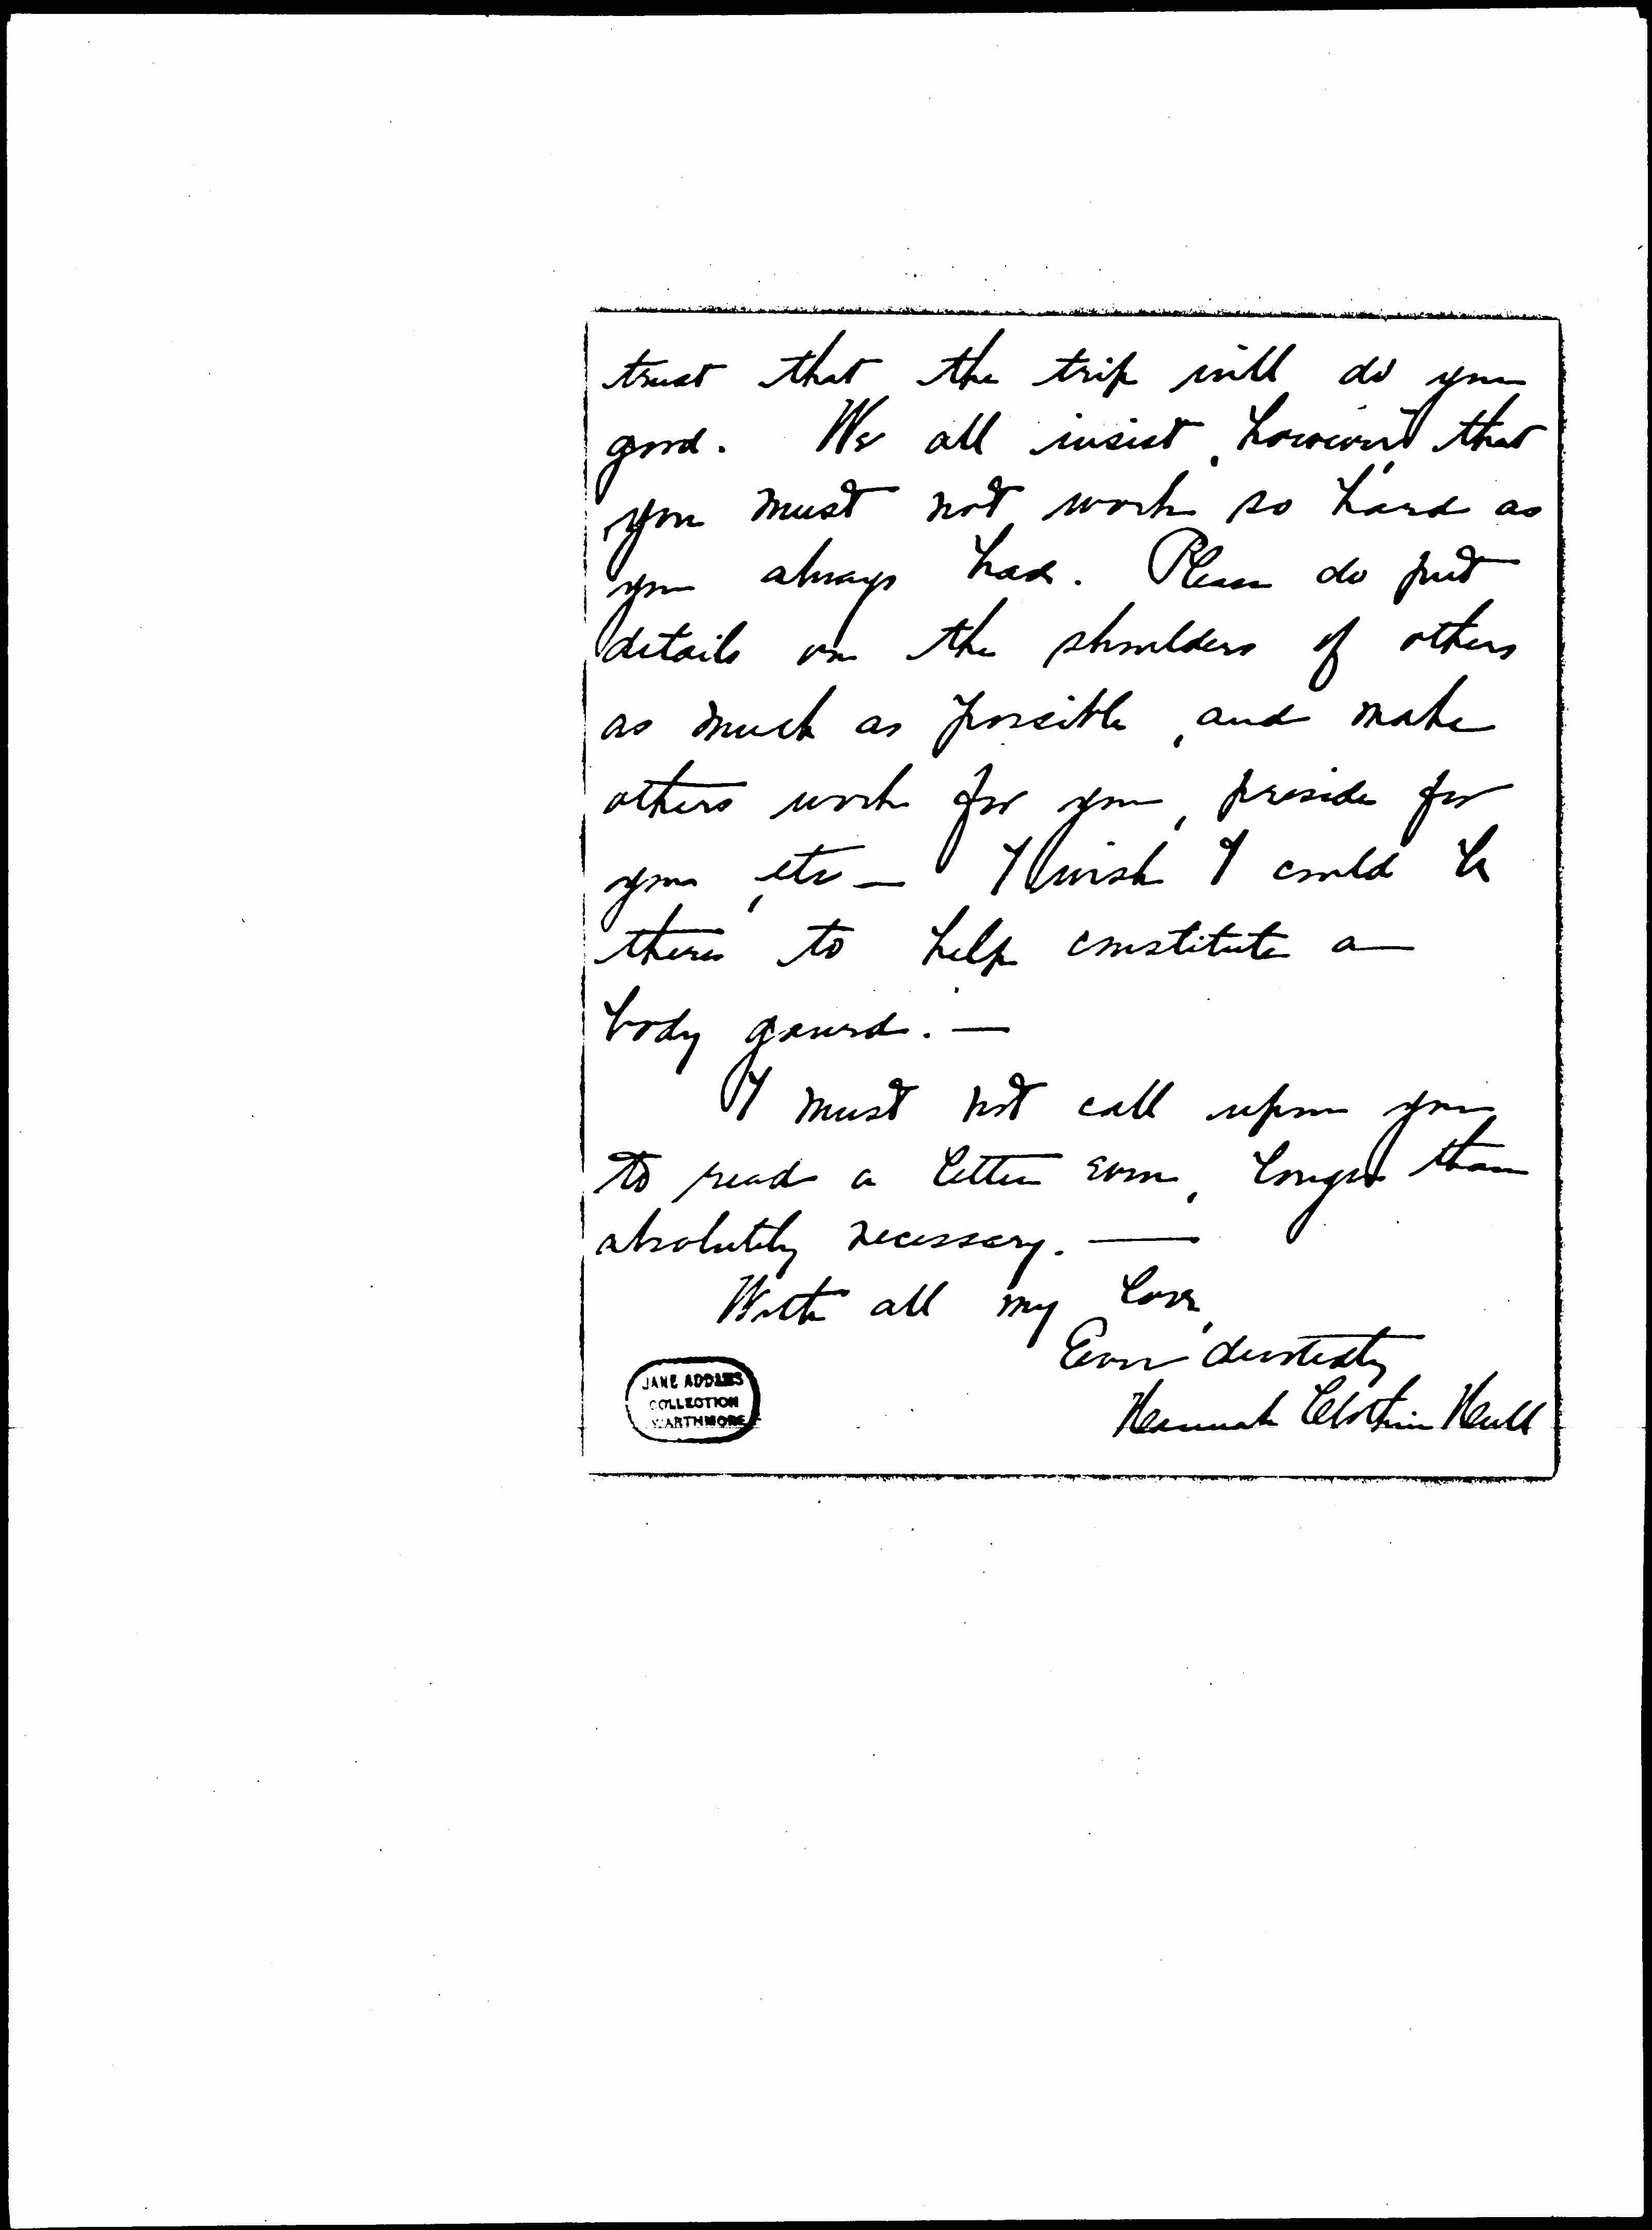 trust that the trip will do you
good. We all insist, however, that
you must not work so hard as
you always have. Please do put
details on the shoulders of others
as much as possible, and make
others work for you, preside for
you, etc — I wish I could be
there to help constitute a
body gaurd. —
I must not call upon you
to read a letter even, longer than
absolutely necessary. —
With all my love,
Ever devotedly
Hannah Clothier Hull
JANE ADDAMS
COLLECTION
SWARTHMORE